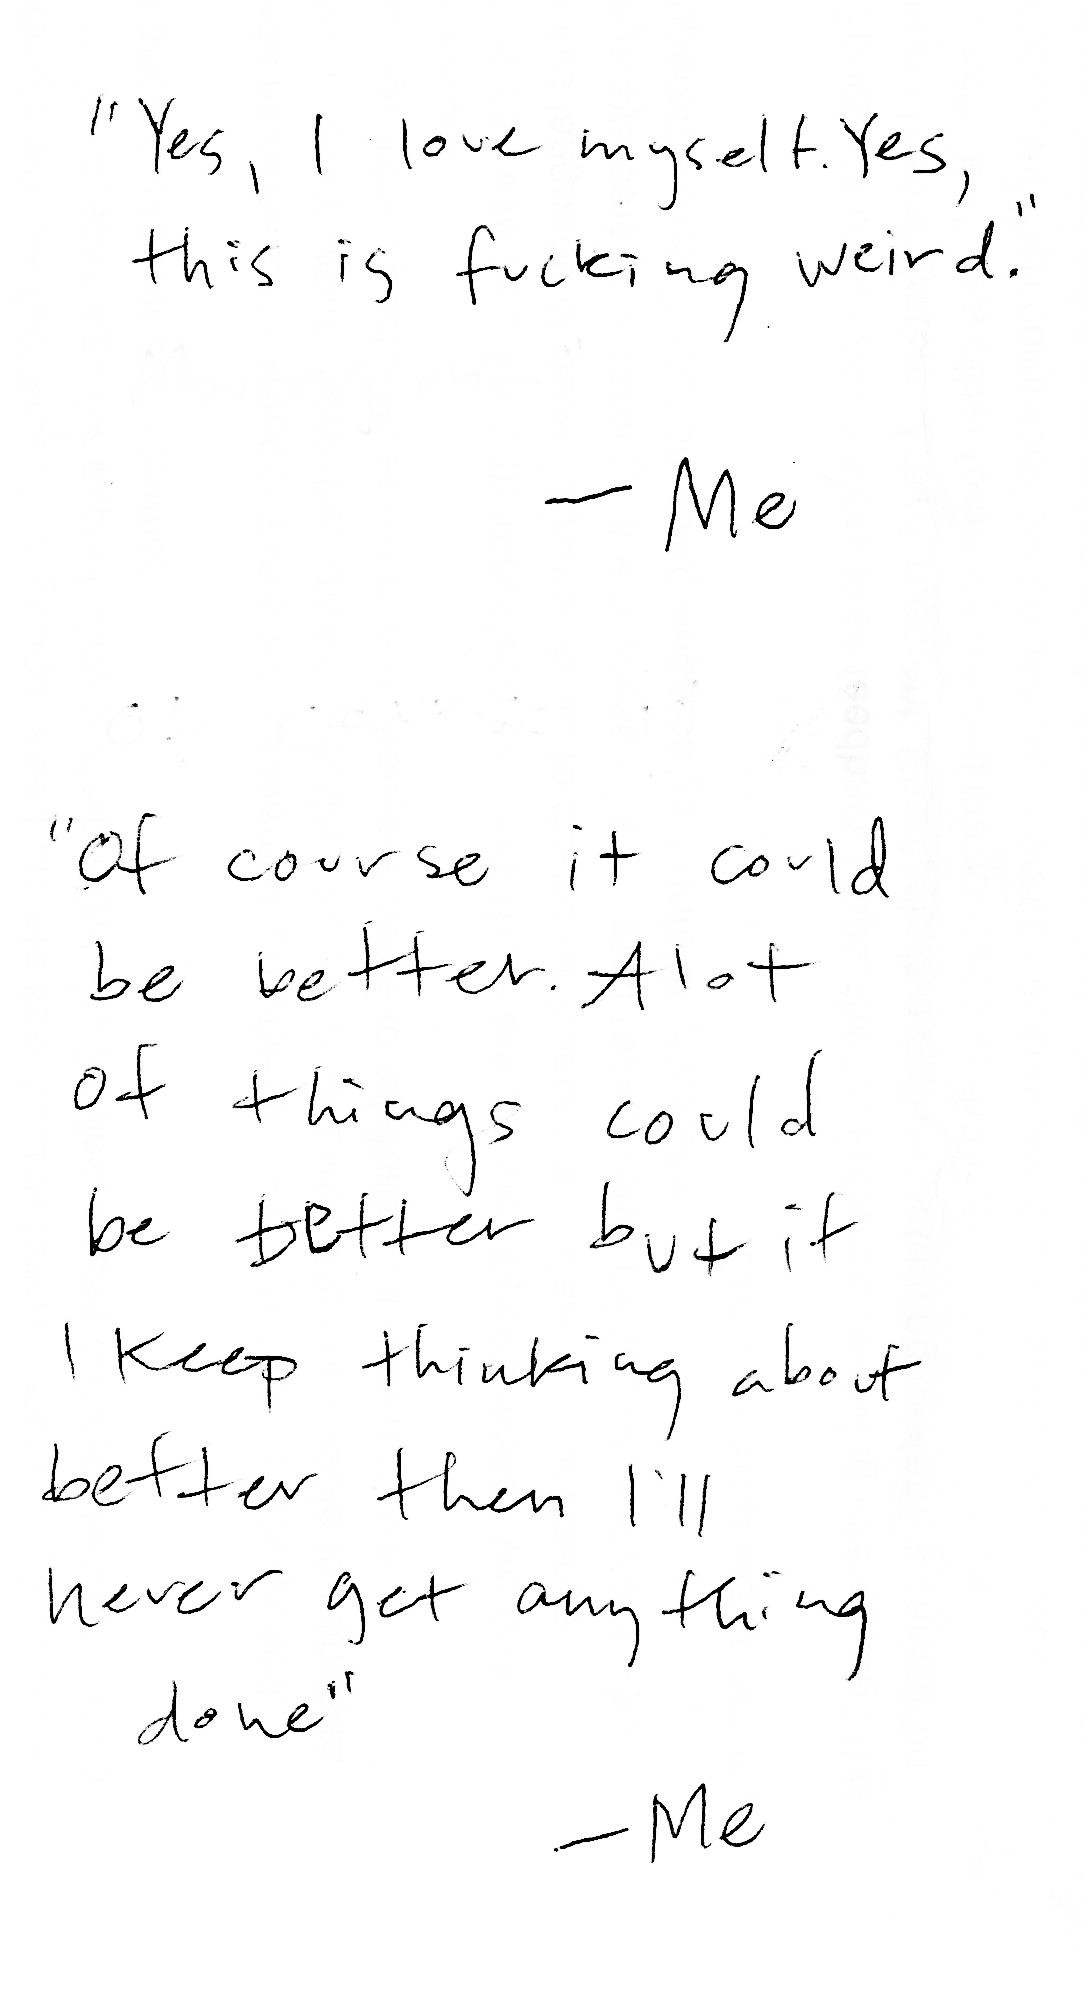 "Yes, I love myself. Yes,
this is fucking weird."
— Me
"Of course it could
be better. Alot
of things could
be better but if
I keep thinking about
better then I'll
never get anything
done"
— Me